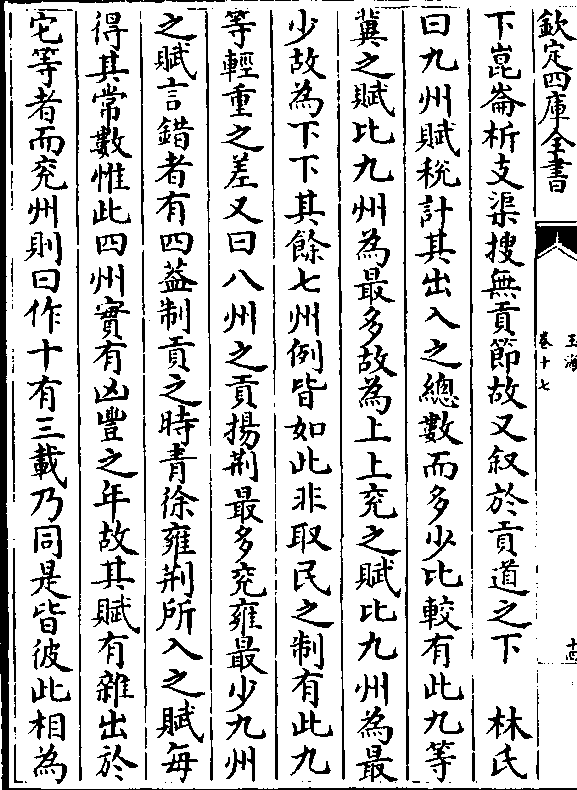 欽定四庫全書
玉海
卷十七
十四
下崑崙析支渠搜無貢節故又叙於貢道之下　林氏
曰九州賦稅計其出入之總數而多少比較有此九等
冀之賦比九州為最多故為上上兖之賦比九州為最
少故為下下其餘七州例皆如此非取民之制有此九
等輕重之差又曰八州之貢揚荆最多兖雍最少九州
之賦言錯者有四葢制貢之時青徐雍荆所入之賦每
得其常數惟此四州實有凶豐之年故其賦有雜出於
它等者而兖州則曰作十有三載乃同是皆彼此相為